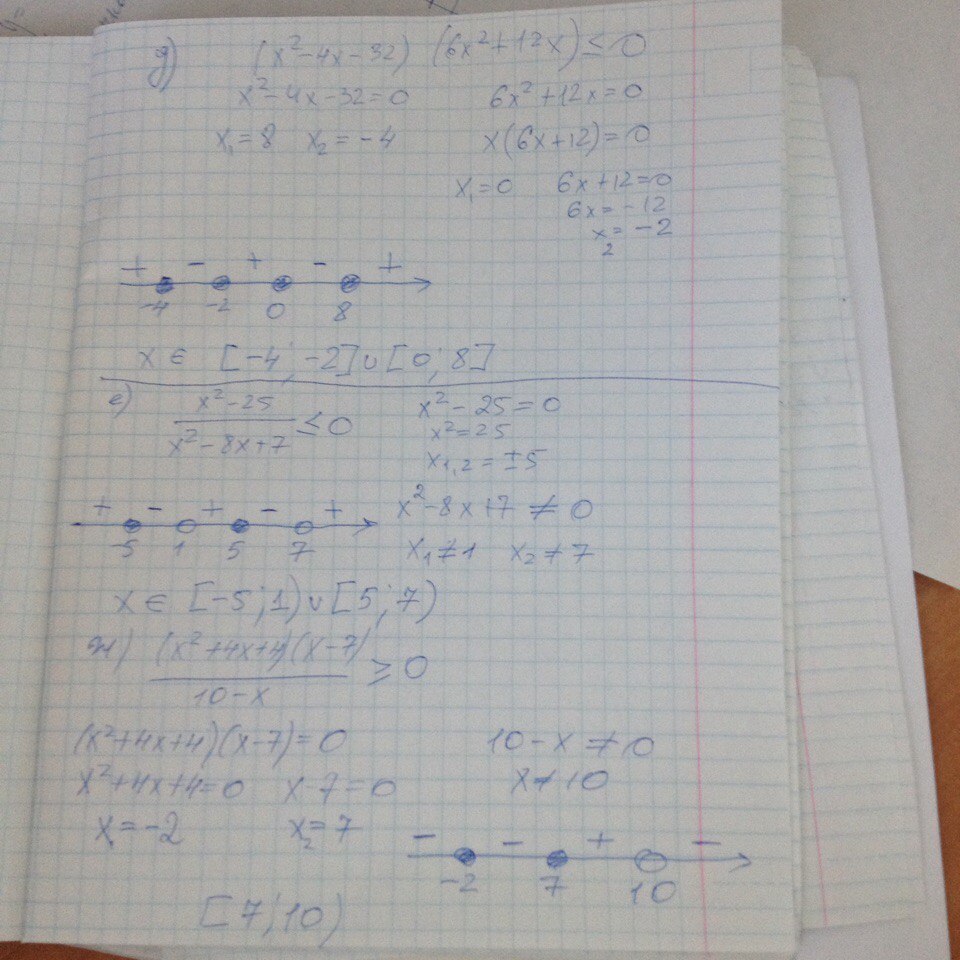 д) (x²-4x-32) (6x²+12x) ≤ 0
x²-4x-32=0 6x²+12x=0
x₁=8 x₂=-4 x(6x+12)=0
x₁=0 6x+12=0
6x=-12
x₂=-2
+ - + - +
-4 -2 0 8
x ∈ [-4;-2]∪[0;8]
е) x²-25 / x²-8x+7 ≤ 0
x²-25=0
x²=25
x₁,₂=±5
+ - + - +
-5 1 5 7
x²-8x+7 ≠ 0
x₁≠1 x₂≠7
x ∈ [-5;1)∪[5;7)
ж) (x²+4x+4)(x-7) / 10-x ≥ 0
(x²+4x+4)(x-7)=0 10-x≠0
x²+4x+4=0 x-7=0 x≠10
x₁=-2 x₂=7
- - + -
-2 7 10
[7;10)